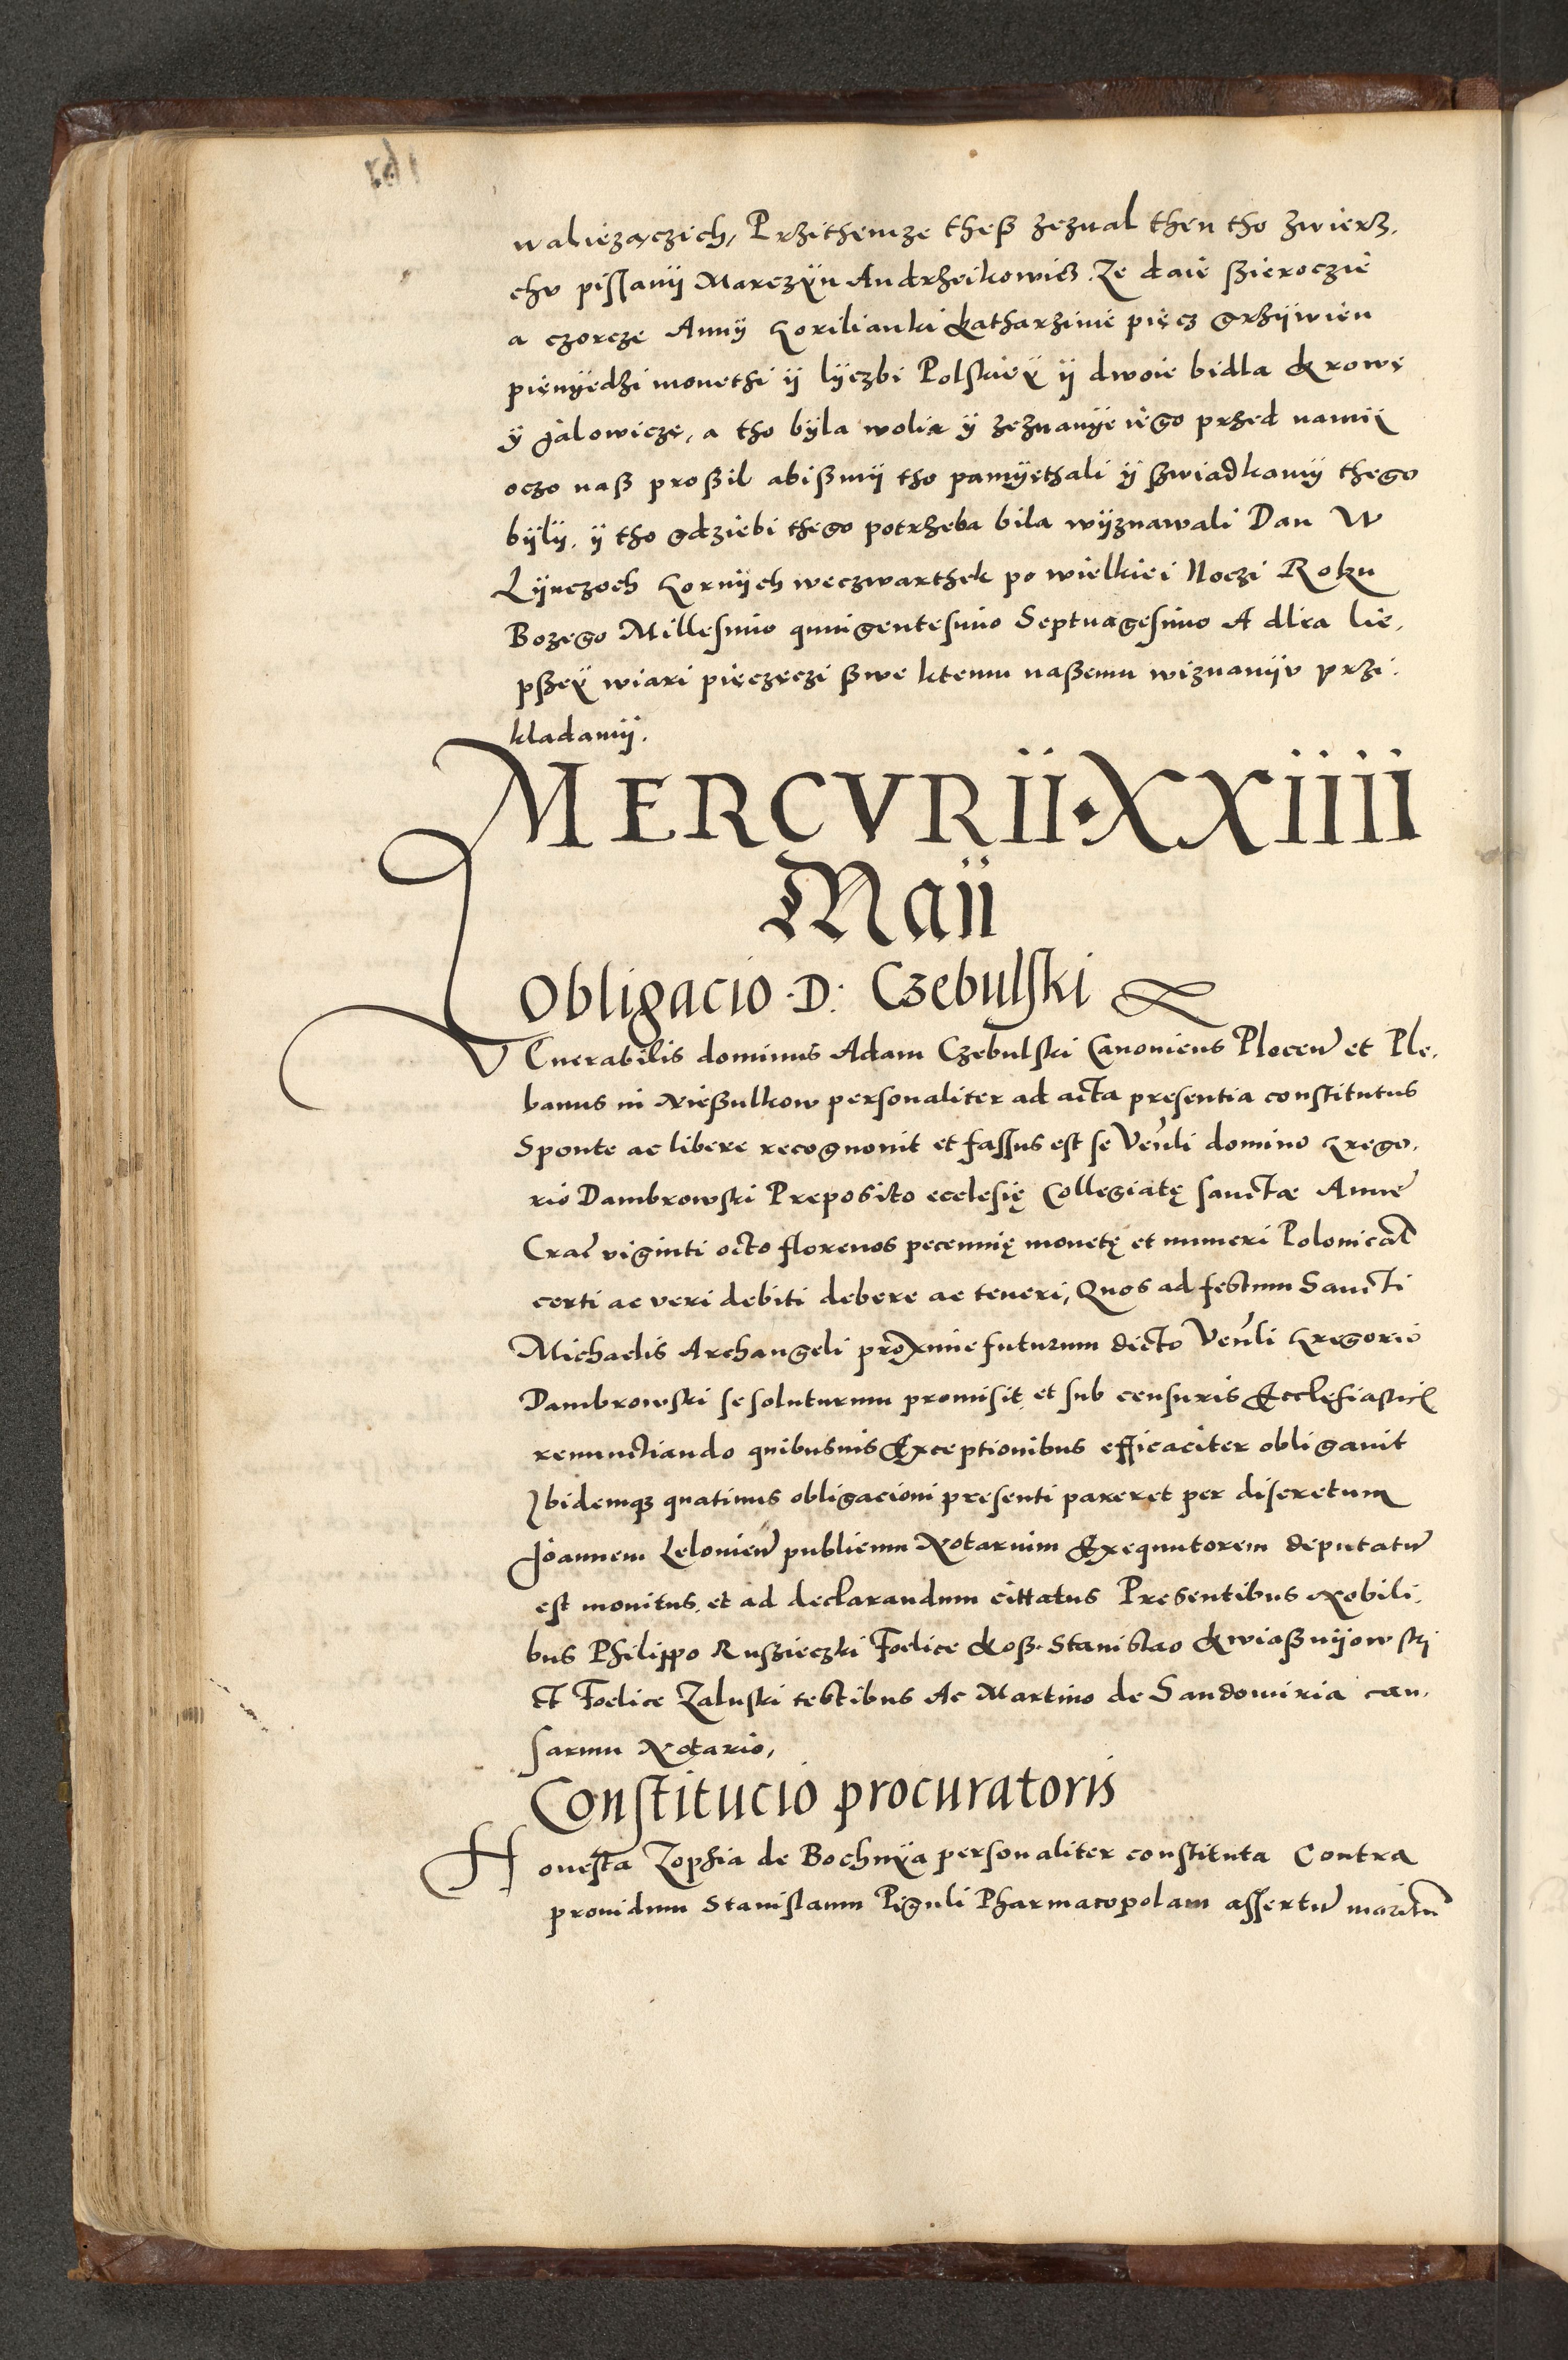 waliezączich, Przithemze theß zeznal then tho zwierz.
chv pissanÿ Marczÿn Andrzeikowicz. Ze daie ßieroczie
a czorcze Annÿ Gorilianki Katharzinie pięcz Grzÿwien
pienÿedzi monethi ÿ lÿczbi Polskieÿ ÿ dwoie bidla krowę
ÿ jalowiczę, a tho bÿla wolia ÿ zeznanÿe iego przed namÿ
oczo naß proßil abißmÿ tho pamÿethali ÿ ßwiadkamÿ thego
bÿlÿ. ÿ tho gdziebi thego potrzeba bila wÿznawali Dan W
Gornÿch weczwarthek po wielkiei Noczi Roku
Bozego Millesimo quingentesimo Septuagesimo A dlia lie.
pßeÿ wiari pieczęczi ßwe ktemu naßemu wiznanÿv przi.
kladamÿ.
MERCVRII · XXIIII
Maii
Obligacio D: Czebulski
Venerabilis dominus Adam Czebulski Canonicus Plocen et Ple.
banus in Nießulkow personaliter ad acta presentia constitutus
Sponte ac libere recognouit et fassus est se Venli domino Grego.
rio Dambrowski Preposito ecclesię Collegiatę sanctæ Anne
Crac viginti octo florenos pecunnię monetę et numeri Polonical
certi ac veri debiti debere ac teneri, Quos ad festum Sancti
Michaelis Archangeli proxime futurum dicto Venli Gregorio
Dambrowski se soluturum promisit et sub censuris Ecclesiastic
renunctiando quibusuis Exceptionibus efficaciter obligauit
Ibidemq quatinus obligacioni presenti pareret per discretum
Joannem Lelouien publicum Notarium Exequutorem deputatu
est monitus. et ad declarandum cittatus Presentibus Nobili.
bus Philippo Ruszieczki Foelice Koß. Stanislao Kwiaßnÿowski
et Foelice Zaluski testibus Ac Martino de Sandomiria cau.
sarum Notario,
Constitucio procuratoris
Honesta Zophia de Bochnÿa personaliter constituta Contra
prouidum Stanislaum Piguli Pharmacopolam assertu maritu